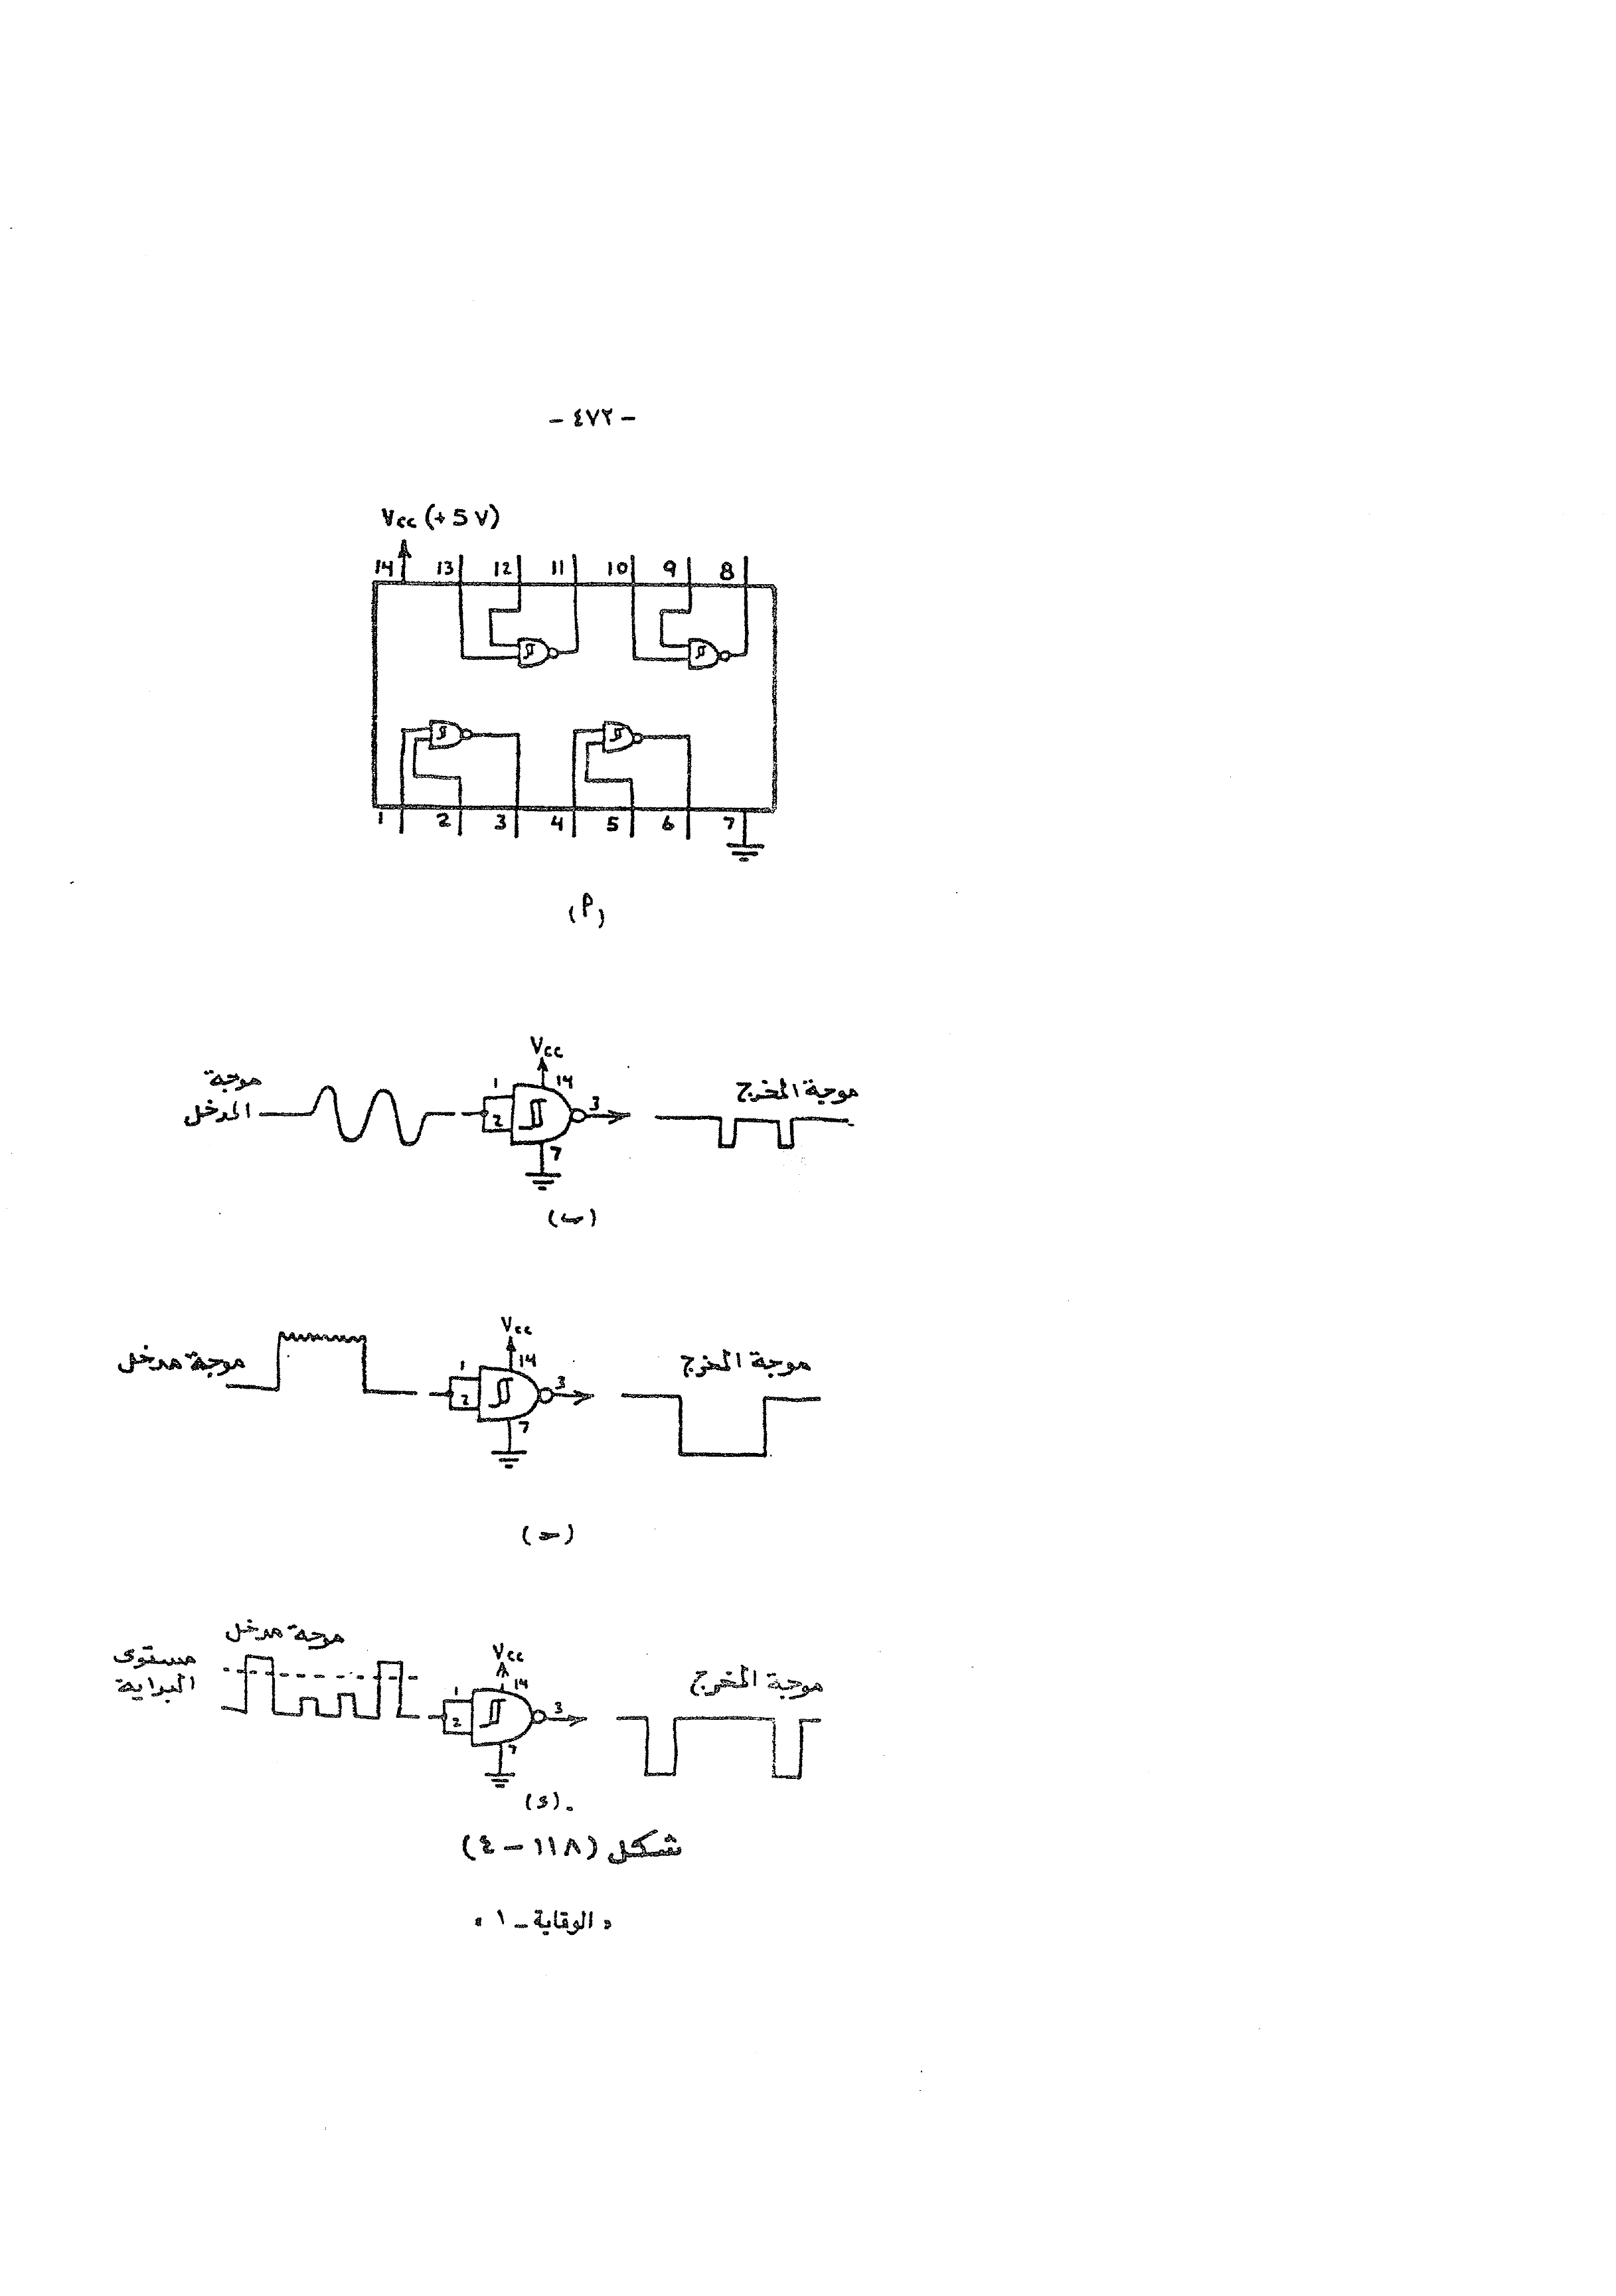 - ٤٧٢ -
Vcc (+5V)
14 13 12 11 10 9 8
1 2 3 4 5 6 7
(أ)
موجة
المدخل
Vcc
14
1
2
3
7
موجة المخرج
(ب)
موجة مدخل
Vcc
14
1
2
3
7
موجة المخرج
(حـ)
موجة مدخل
مستوى
البداية
Vcc
14
1
2
3
7
موجة المخرج
(د)
شكل (١١٨ - ٤)
« الوقاية - ١ »